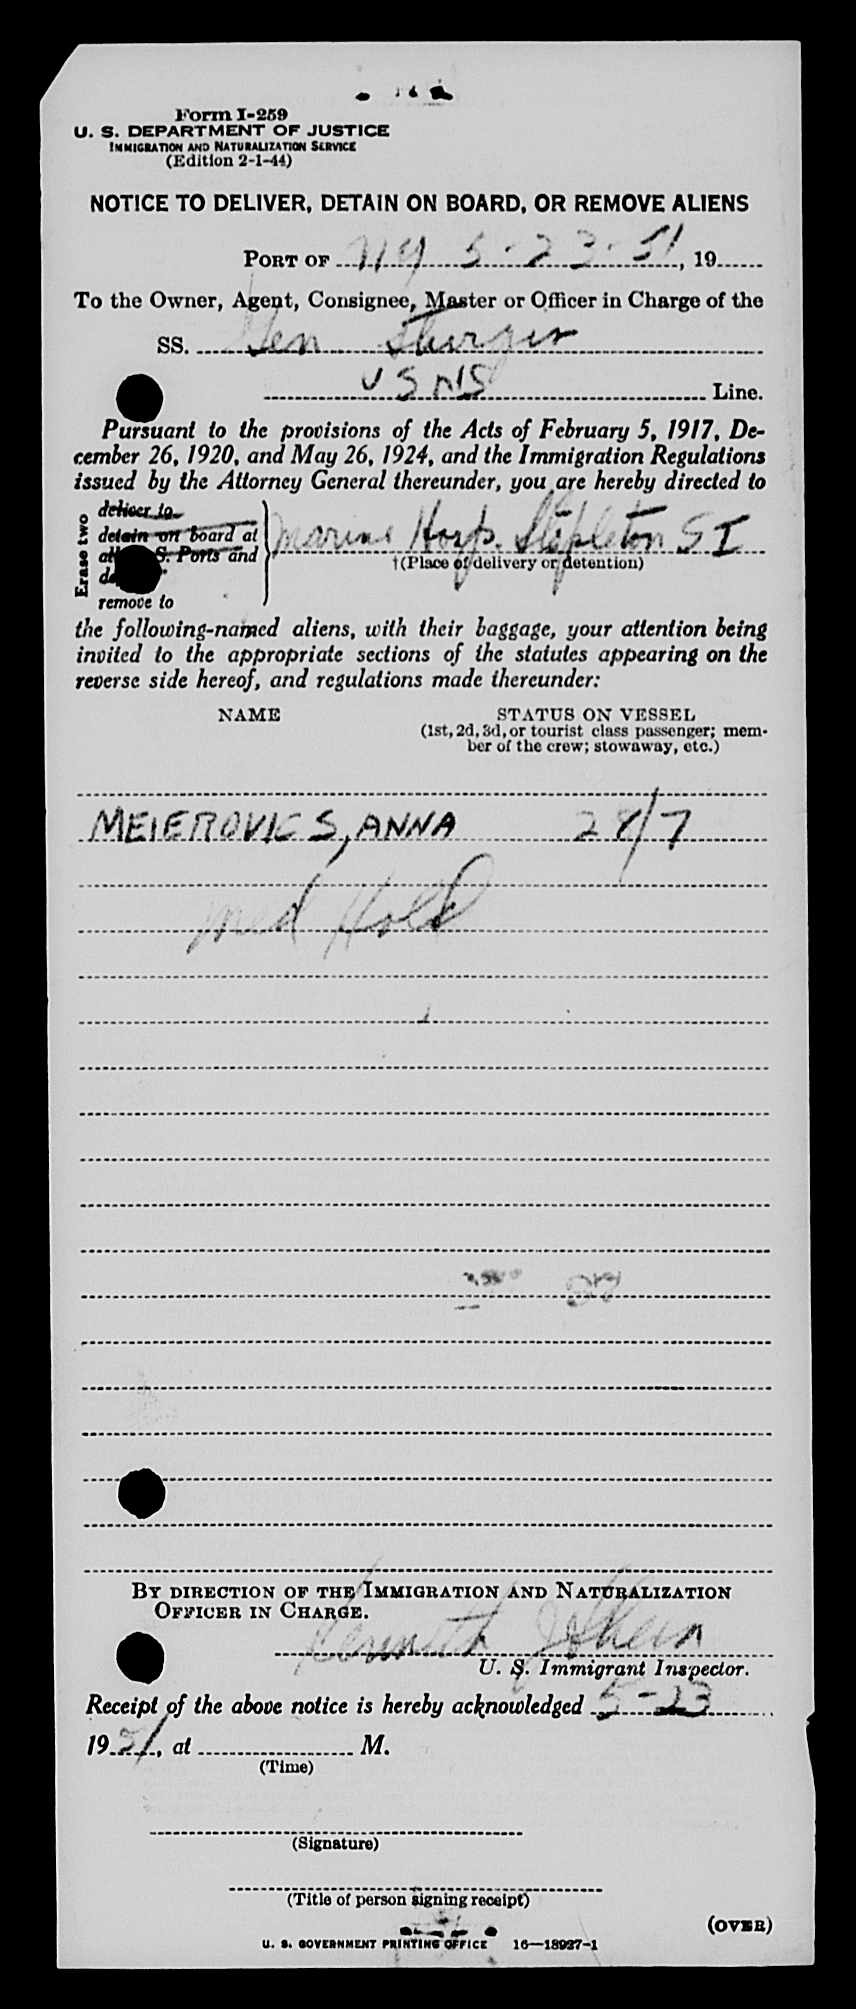 Form I-259
U. S. DEPARTMENT OF JUSTICE
IMMIGRATION AND NATURALIZATION SERVICE
(Edition 2-1-44)
NOTICE TO DELIVER, DETAIN ON BOARD, OR REMOVE ALIENS
PORT OF NY 5-23-51, 19
To the Owner, Agent, Consignee, Master or Officer in Charge of the
SS. Gen Sturgis
USNS Line.
Pursuant to the provisions of the Acts of February 5, 1917, De-
cember 26, 1920, and May 26, 1924, and the Immigration Regulations
issued by the Attorney General thereunder, you are hereby directed to
Erase two
deliver to
detain on board at
S. Ports and
remove to
Marine Hosp. Stapleton SI
†(Place of delivery or detention)
the following-named aliens, with their baggage, your attention being
invited to the appropriate sections of the statutes appearing on the
reverse side hereof, and regulations made thereunder:
NAME STATUS ON VESSEL
(1st, 2d, 3d, or tourist class passenger; mem-
ber of the crew; stowaway, etc.)
MEIEROVICS, ANNA 28/7
Med Hold
BY DIRECTION OF THE IMMIGRATION AND NATURALIZATION
OFFICER IN CHARGE.
Kenneth
U. S. Immigrant Inspector.
Receipt of the above notice is hereby acknowledged 5-23
1951, at M.
(Time)
(Signature)
(Title of person signing receipt)
(OVER)
U. S. GOVERNMENT PRINTING OFFICE 16—18927-1